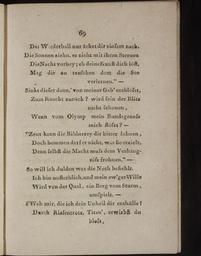 69
Der Wiederhall nur ächzt dir einsam nach.
Die Sonnen ziehn, es zieht mit ihren Sternen
Die Nacht vorbey;
Mag dir zu tauschen dem die
verlernen." —
Sinkt dieser dann,' von meiner entblößt,
Zum Knecht zurück? wird sein der Blitz
nicht schonen,
Wenn vom Olymp mein Bundsgenoss
mich stößt? —
"Zeus kann die bitter lohnen,
Doch hemmen darf er nicht, was
Denn selbst die Macht muß dem Verhäng-
niß frohnen." —
So will ich dulden was die Noth befiehlt.
Ich bin unsterblich, und mein ew'ger Wille
Wird von der Qual, ein Berg vom Sturm,
umspielt. —
"Weh mir, die ich dein Unheil dir enthülle!
Durch Riesentrotz, Titan', erwirbst du
bloß,